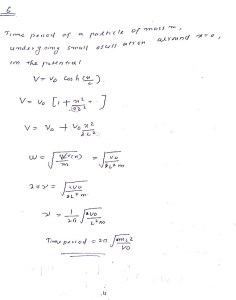 6
Time period of a particle of mass m,
undergoing small oscillation around x=0,
in the potential
V = V₀ cosh(x/L)
V = V₀ [1 + x²/2L² + ]
V = V₀ + V₀ x²/2L²
ω = √(V''(x)/m) = √(V₀/2L²m)
2πν = √(2V₀/L²m)
ν = 1/2π √(2V₀/L²m)
Time period = 2π √(2mL²/V₀)